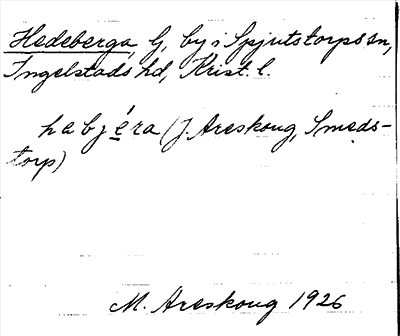 Hedeberga, G, by i Spjutstorps sn,
Ingelstads hd, Krist. l.
habjéra (J. Areskoug, Smeds-
torp)
M. Areskoug 1926